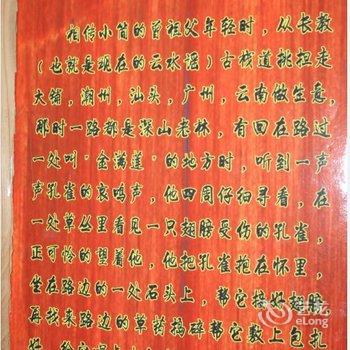 相传小简的曾祖父年轻时，从长教
（也就是现在的云水谣）古栈道挑担走
大铺，潮州，汕头，广州，云南做生意，
那时一路都是深山老林，有回在路过
一处叫“金沟道”的地方时，听到一声
声孔雀的哀鸣声，他四周仔细寻看，在
一处草丛里看见一只翅膀受伤的孔雀，
正可怜的望着他，他把孔雀抱在怀里，
坐在路边的一处石头上，帮它接好翅膀
再找来路边的草药捣碎帮它敷上包扎
好，给它喂上
艺龙
eLong